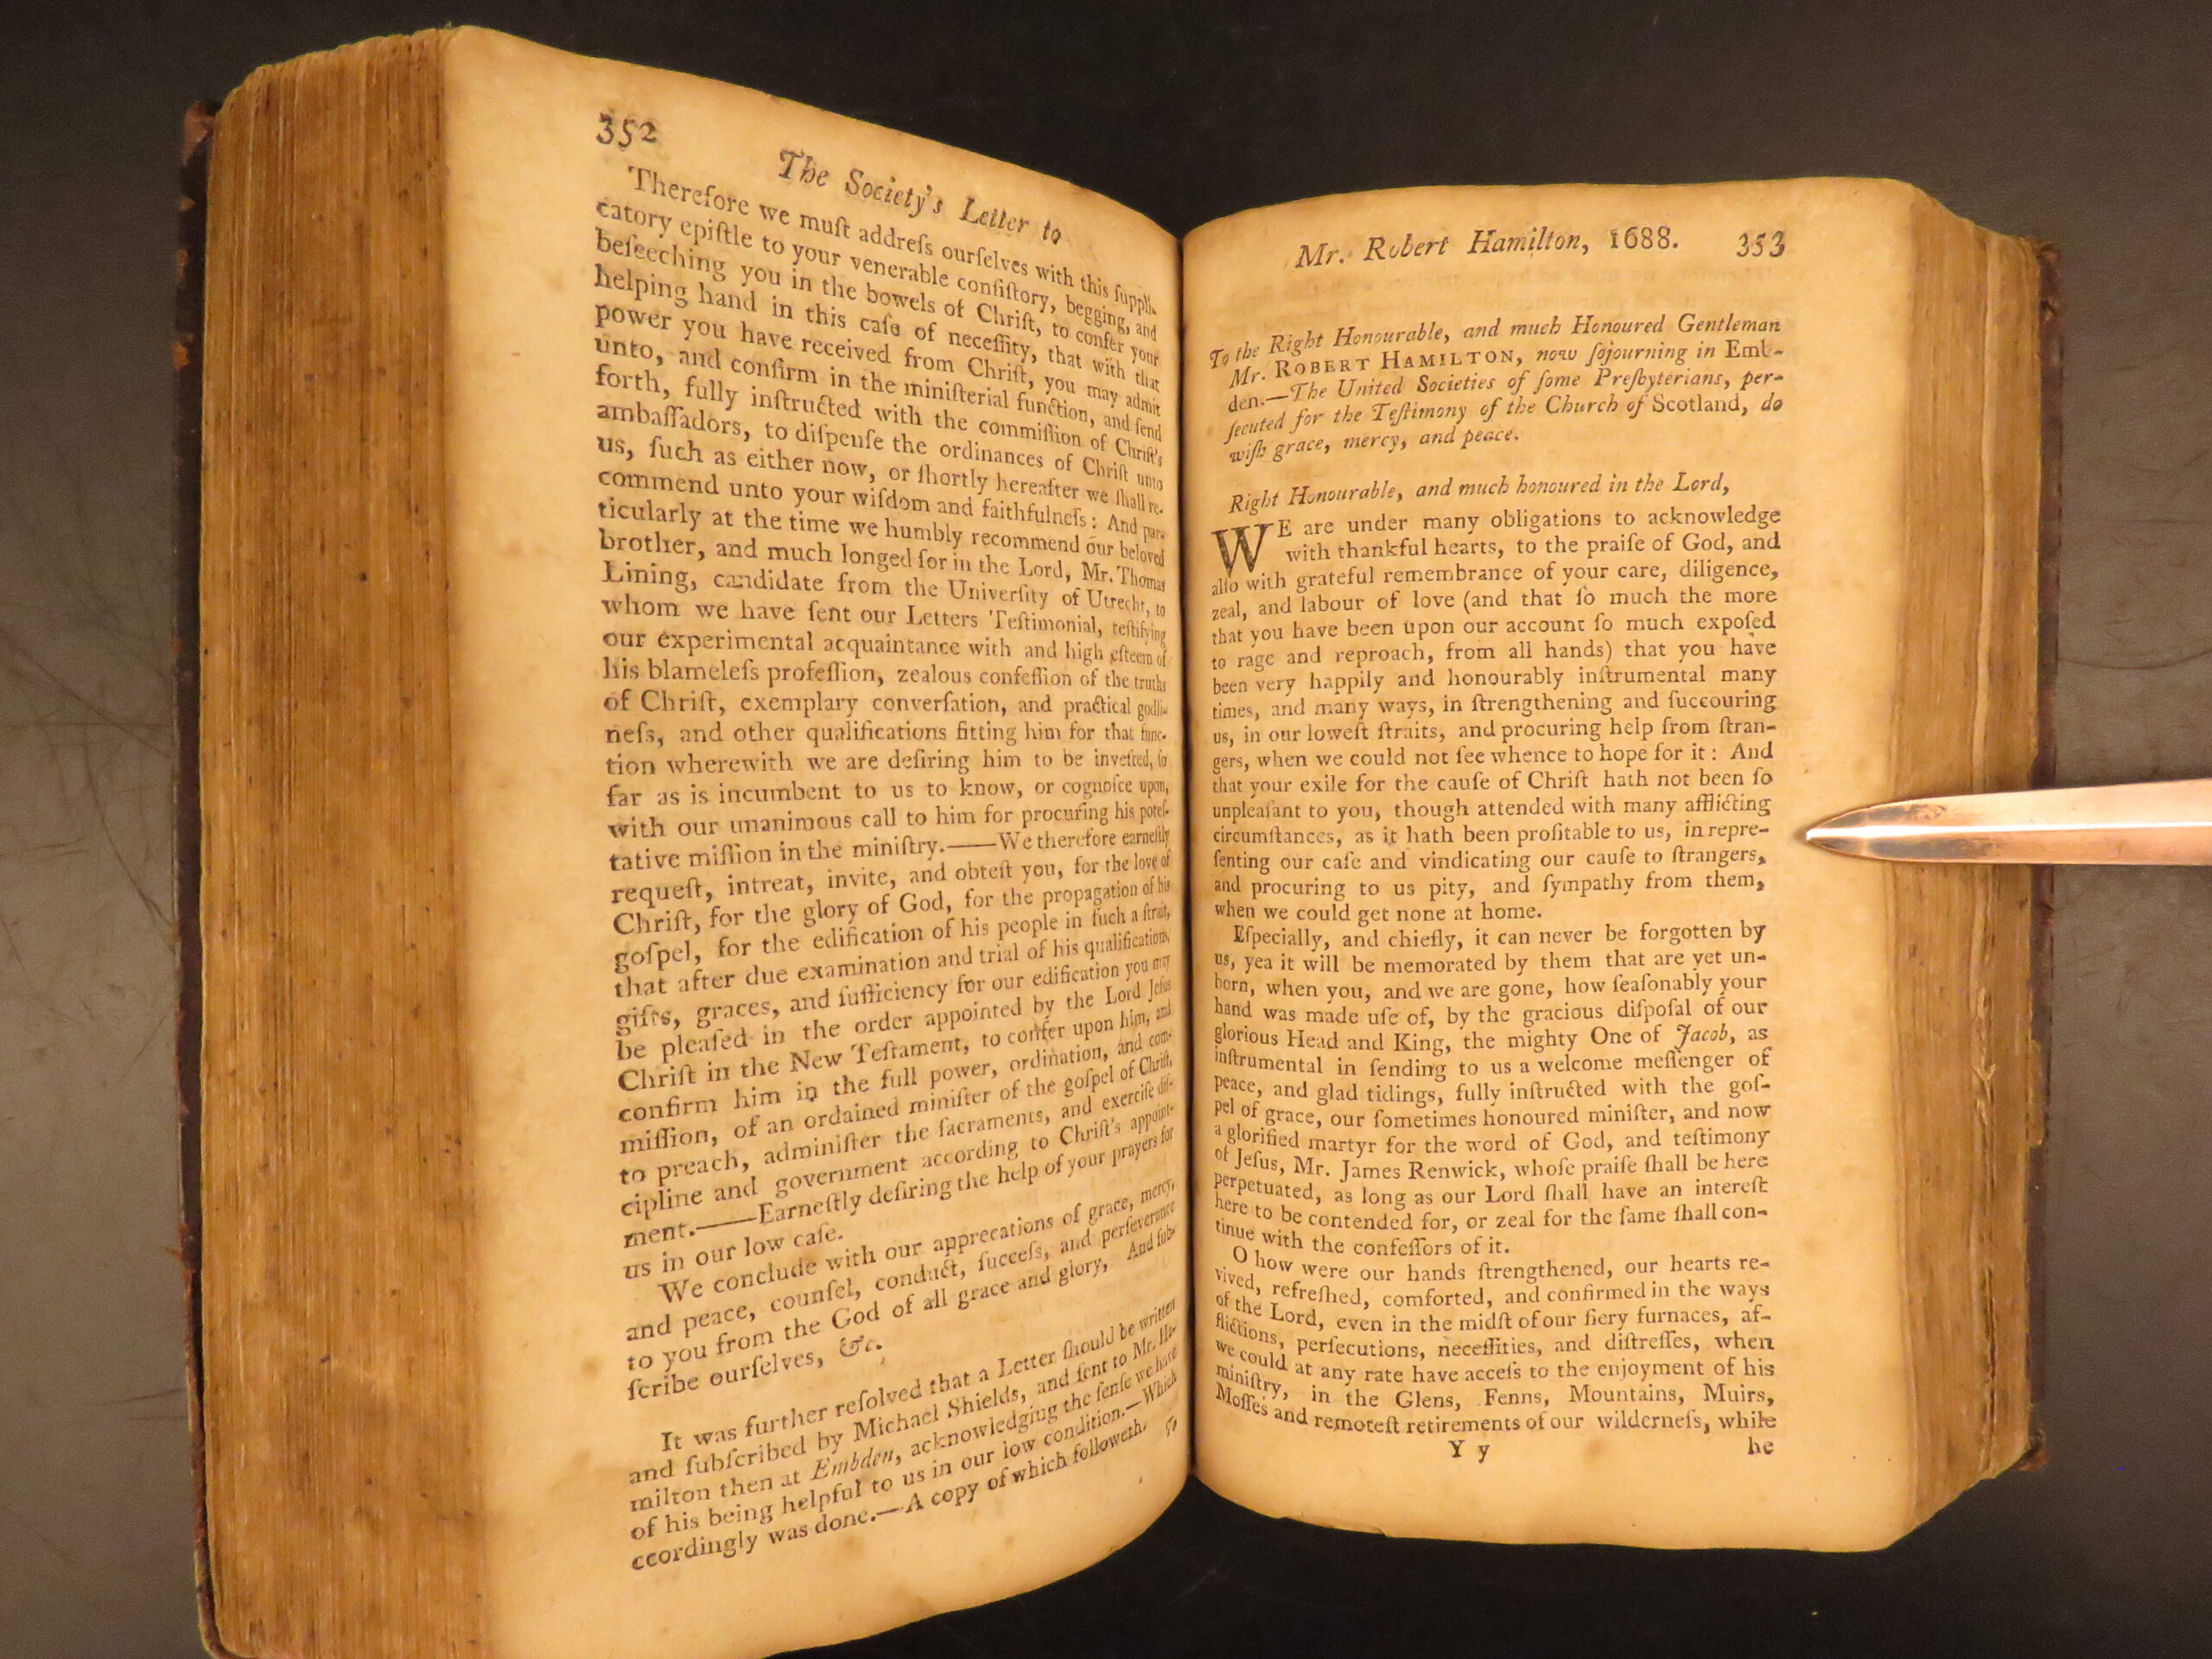 352
The Society's Letter to
Therefore we muſt addreſs ourſelves with this ſuppli-
catory epiſtle to your venerable conſiſtory, begging, and
beſeeching you in the bowels of Chriſt, to confer your
helping hand in this caſe of neceſſity, that with that
power you have received from Chriſt, you may admit
unto, and confirm in the miniſterial function, and ſend
forth, fully inſtructed with the commiſſion of Chriſt's
ambaſſadors, to diſpenſe the ordinances of Chriſt unto
us, ſuch as either now, or ſhortly hereafter we ſhall re-
commend unto your wiſdom and faithfulneſs: And par-
ticularly at the time we humbly recommend our beloved
brother, and much longed for in the Lord, Mr. Thomas
Lining, candidate from the Univerſity of Utrecht, to
whom we have ſent our Letters Teſtimonial, teſtifying
our experimental acquaintance with and high eſteem of
his blameleſs profeſſion, zealous confeſſion of the truths
of Chriſt, exemplary converſation, and practical godli-
neſs, and other qualifications fitting him for that func-
tion wherewith we are deſiring him to be inveſted, ſo
far as is incumbent to us to know, or cognoſce upon,
with our unanimous call to him for procuring his poteſ-
tative miſſion in the miniſtry.——We therefore earneſtly
requeſt, intreat, invite, and obteſt you, for the love of
Chriſt, for the glory of God, for the propagation of his
goſpel, for the edification of his people in ſuch a ſtrait,
that after due examination and trial of his qualifications,
gifts, graces, and ſufficiency for our edification you may
be pleaſed in the order appointed by the Lord Jeſus
Chriſt in the New Teſtament, to confer upon him, and
confirm him in the full power, ordination, and com-
miſſion, of an ordained miniſter of the goſpel of Chriſt,
to preach, adminiſter the ſacraments, and exerciſe diſ-
cipline and government according to Chriſt's appoint-
ment.——Earneſtly deſiring the help of your prayers for
us in our low caſe.
We conclude with our apprecations of grace, mercy,
and peace, counſel, conduct, ſucceſs, and perſeverance
to you from the God of all grace and glory, And ſub-
ſcribe ourſelves, &c.
It was further reſolved that a Letter ſhould be written
and ſubſcribed by Michael Shields, and ſent to Mr. Ha-
milton then at Embden, acknowledging the ſenſe we have
of his being helpful to us in our low condition.—Which
ccordingly was done.—A copy of which followeth.
To
Mr. Robert Hamilton, 1688. 353
To the Right Honourable, and much Honoured Gentleman
Mr. ROBERT HAMILTON, now ſojourning in Emb-
den.—The United Societies of ſome Preſbyterians, per-
ſecuted for the Teſtimony of the Church of Scotland, do
wiſh grace, mercy, and peace.
Right Honourable, and much honoured in the Lord,
WE are under many obligations to acknowledge
with thankful hearts, to the praiſe of God, and
alſo with grateful remembrance of your care, diligence,
zeal, and labour of love (and that ſo much the more
that you have been upon our account ſo much expoſed
to rage and reproach, from all hands) that you have
been very happily and honourably inſtrumental many
times, and many ways, in ſtrengthening and ſuccouring
us, in our loweſt ſtraits, and procuring help from ſtran-
gers, when we could not ſee whence to hope for it: And
that your exile for the cauſe of Chriſt hath not been ſo
unpleaſant to you, though attended with many afflicting
circumſtances, as it hath been profitable to us, in repre-
ſenting our caſe and vindicating our cauſe to ſtrangers,
and procuring to us pity, and ſympathy from them,
when we could get none at home.
Eſpecially, and chiefly, it can never be forgotten by
us, yea it will be memorated by them that are yet un-
born, when you, and we are gone, how ſeaſonably your
hand was made uſe of, by the gracious diſpoſal of our
glorious Head and King, the mighty One of Jacob, as
inſtrumental in ſending to us a welcome meſſenger of
peace, and glad tidings, fully inſtructed with the goſ-
pel of grace, our ſometimes honoured miniſter, and now
a glorified martyr for the word of God, and teſtimony
of Jeſus, Mr. James Renwick, whoſe praiſe ſhall be here
perpetuated, as long as our Lord ſhall have an intereſt
here to be contended for, or zeal for the ſame ſhall con-
tinue with the confeſſors of it.
O how were our hands ſtrengthened, our hearts re-
vived, refreſhed, comforted, and confirmed in the ways
of the Lord, even in the midſt of our fiery furnaces, af-
flictions, perſecutions, neceſſities, and diſtreſſes, when
we could at any rate have acceſs to the enjoyment of his
miniſtry, in the Glens, Fenns, Mountains, Muirs,
Moſſes and remoteſt retirements of our wilderneſs, while
Y y he